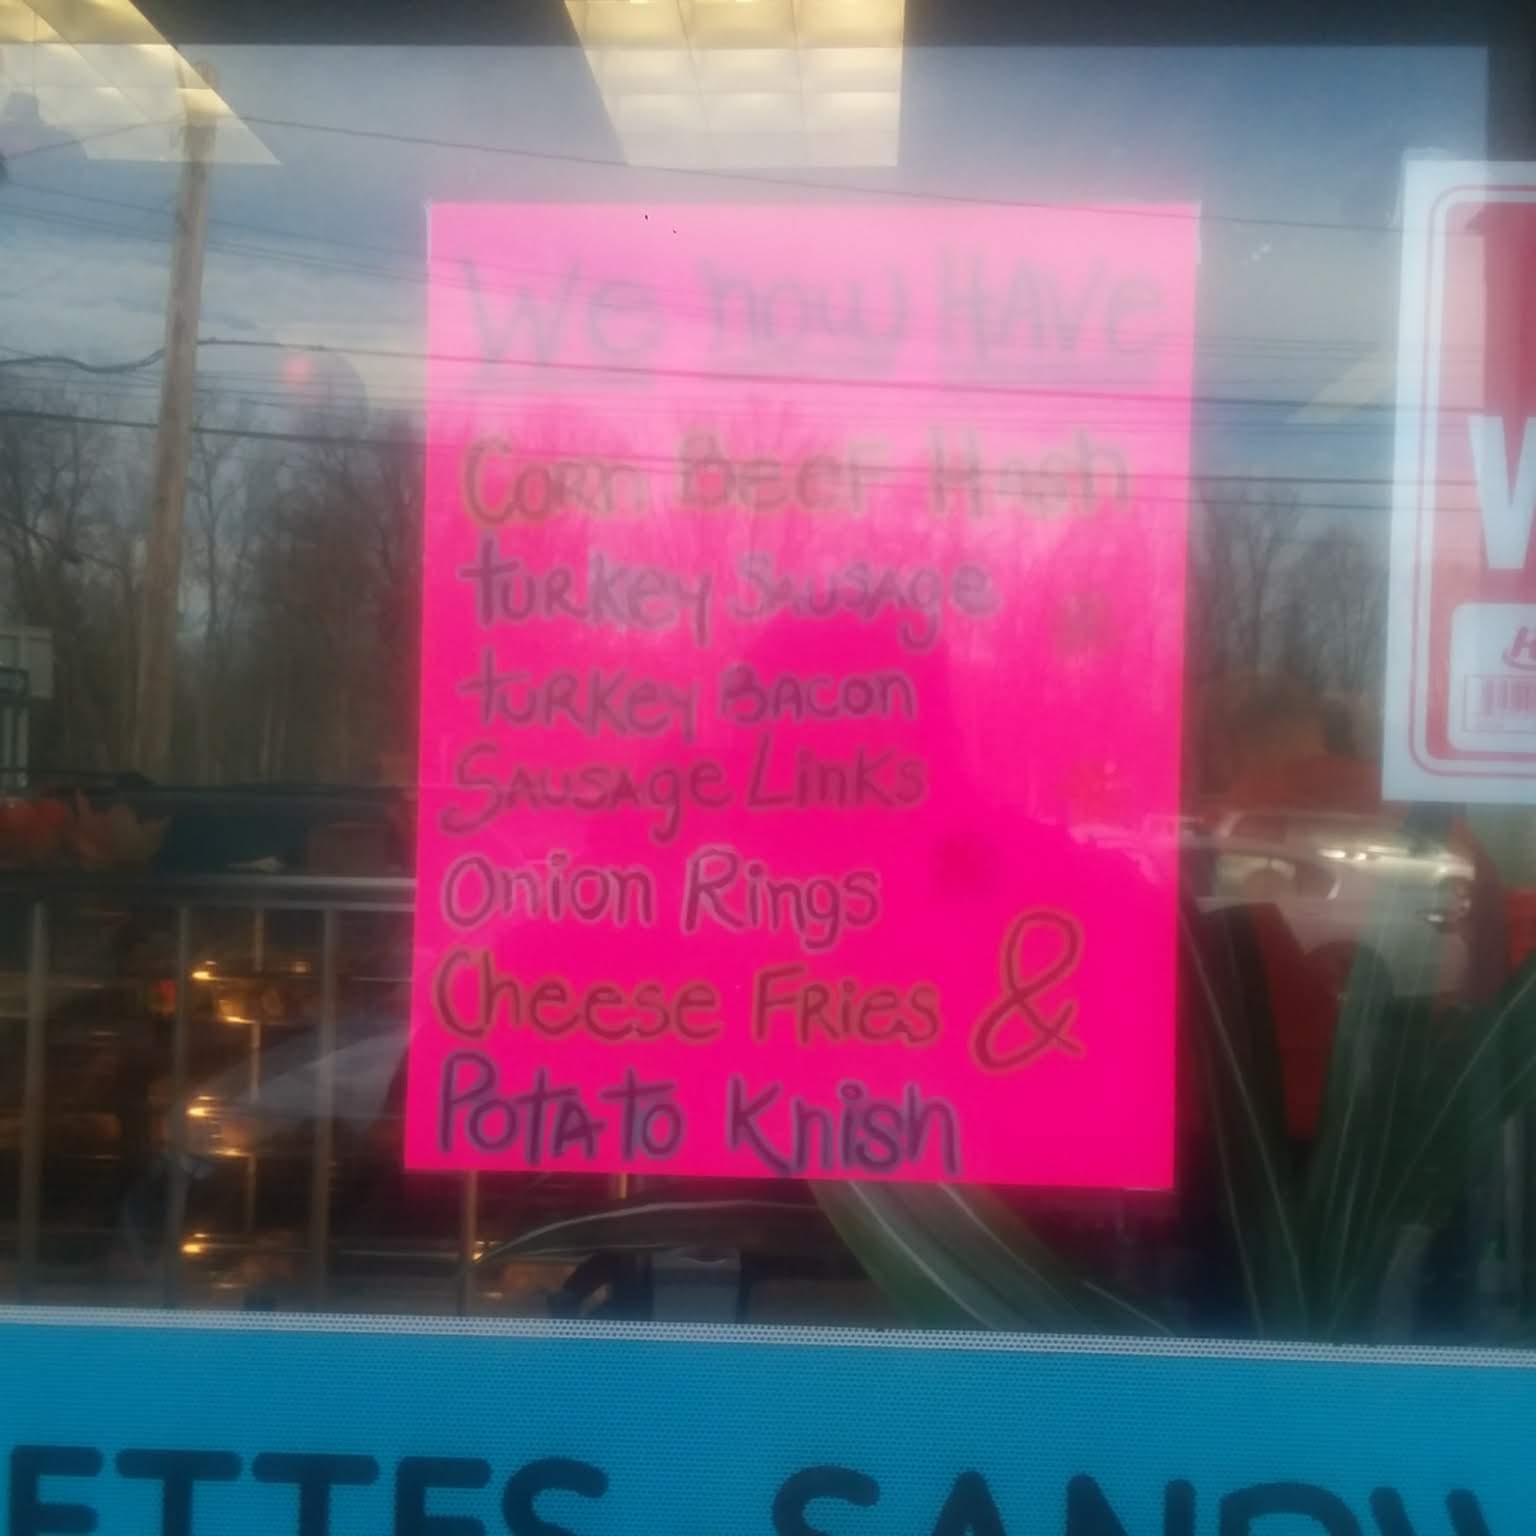 We now HAVE
Corn BEEF Hash
turkey Sausage
turkey BACON
Sausage Links
Onion Rings
Cheese Fries &
Potato Knish
W
ETTES SANDW